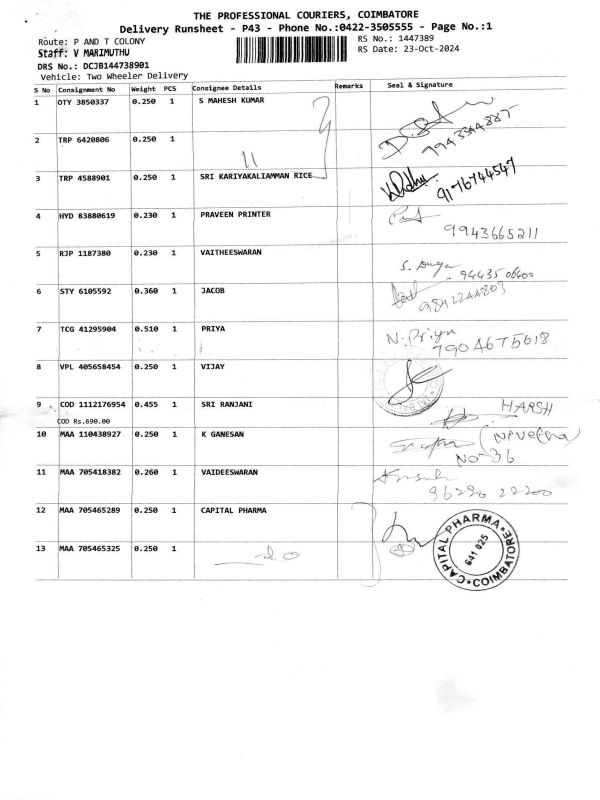 THE PROFESSIONAL COURIERS, COIMBATORE
Delivery Runsheet - P43 - Phone No.:0422-3505555 - Page No.:1
Route: P AND T COLONY
RS No.: 1447389
Staff: V MARIMUTHU
RS Date: 23-Oct-2024
DRS No.: DCJB144738901
Vehicle: Two Wheeler Delivery
S No Consignment No Weight PCS Consignee Details Remarks Seal & Signature
1 OTY 3850337 0.250 1 S MAHESH KUMAR
2 TRP 6420806 0.250 1 11
3 TRP 4588901 0.250 1 SRI KARIYAKALIAMMAN RICE 9176744547
4 HYD 83880619 0.230 1 PRAVEEN PRINTER 9943665211
5 RJP 1187380 0.230 1 VAITHEESWARAN
6 STY 6105592 0.360 1 JACOB
7 TCG 41295904 0.510 1 PRIYA N. Priya 7904675618
8 VPL 405658454 0.250 1 VIJAY
9 COD 1112176954 0.455 1 SRI RANJANI HARSH
COD Rs.690.00
10 MAA 110438927 0.250 1 K GANESAN (Naveena) No-36
11 MAA 705418382 0.260 1 VAIDEESWARAN 96290 22200
12 MAA 705465289 0.250 1 CAPITAL PHARMA
13 MAA 705465325 0.250 1 do
CAPITAL PHARMA * COIMBATORE *
641 025